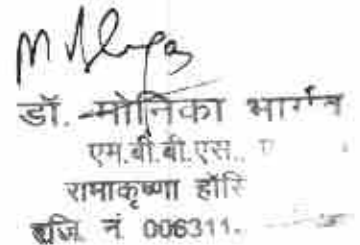 डॉ. मोनिका भार्गव
एम.बी.बी.एस..
रामाकृष्णा
रजि. नं 006311.